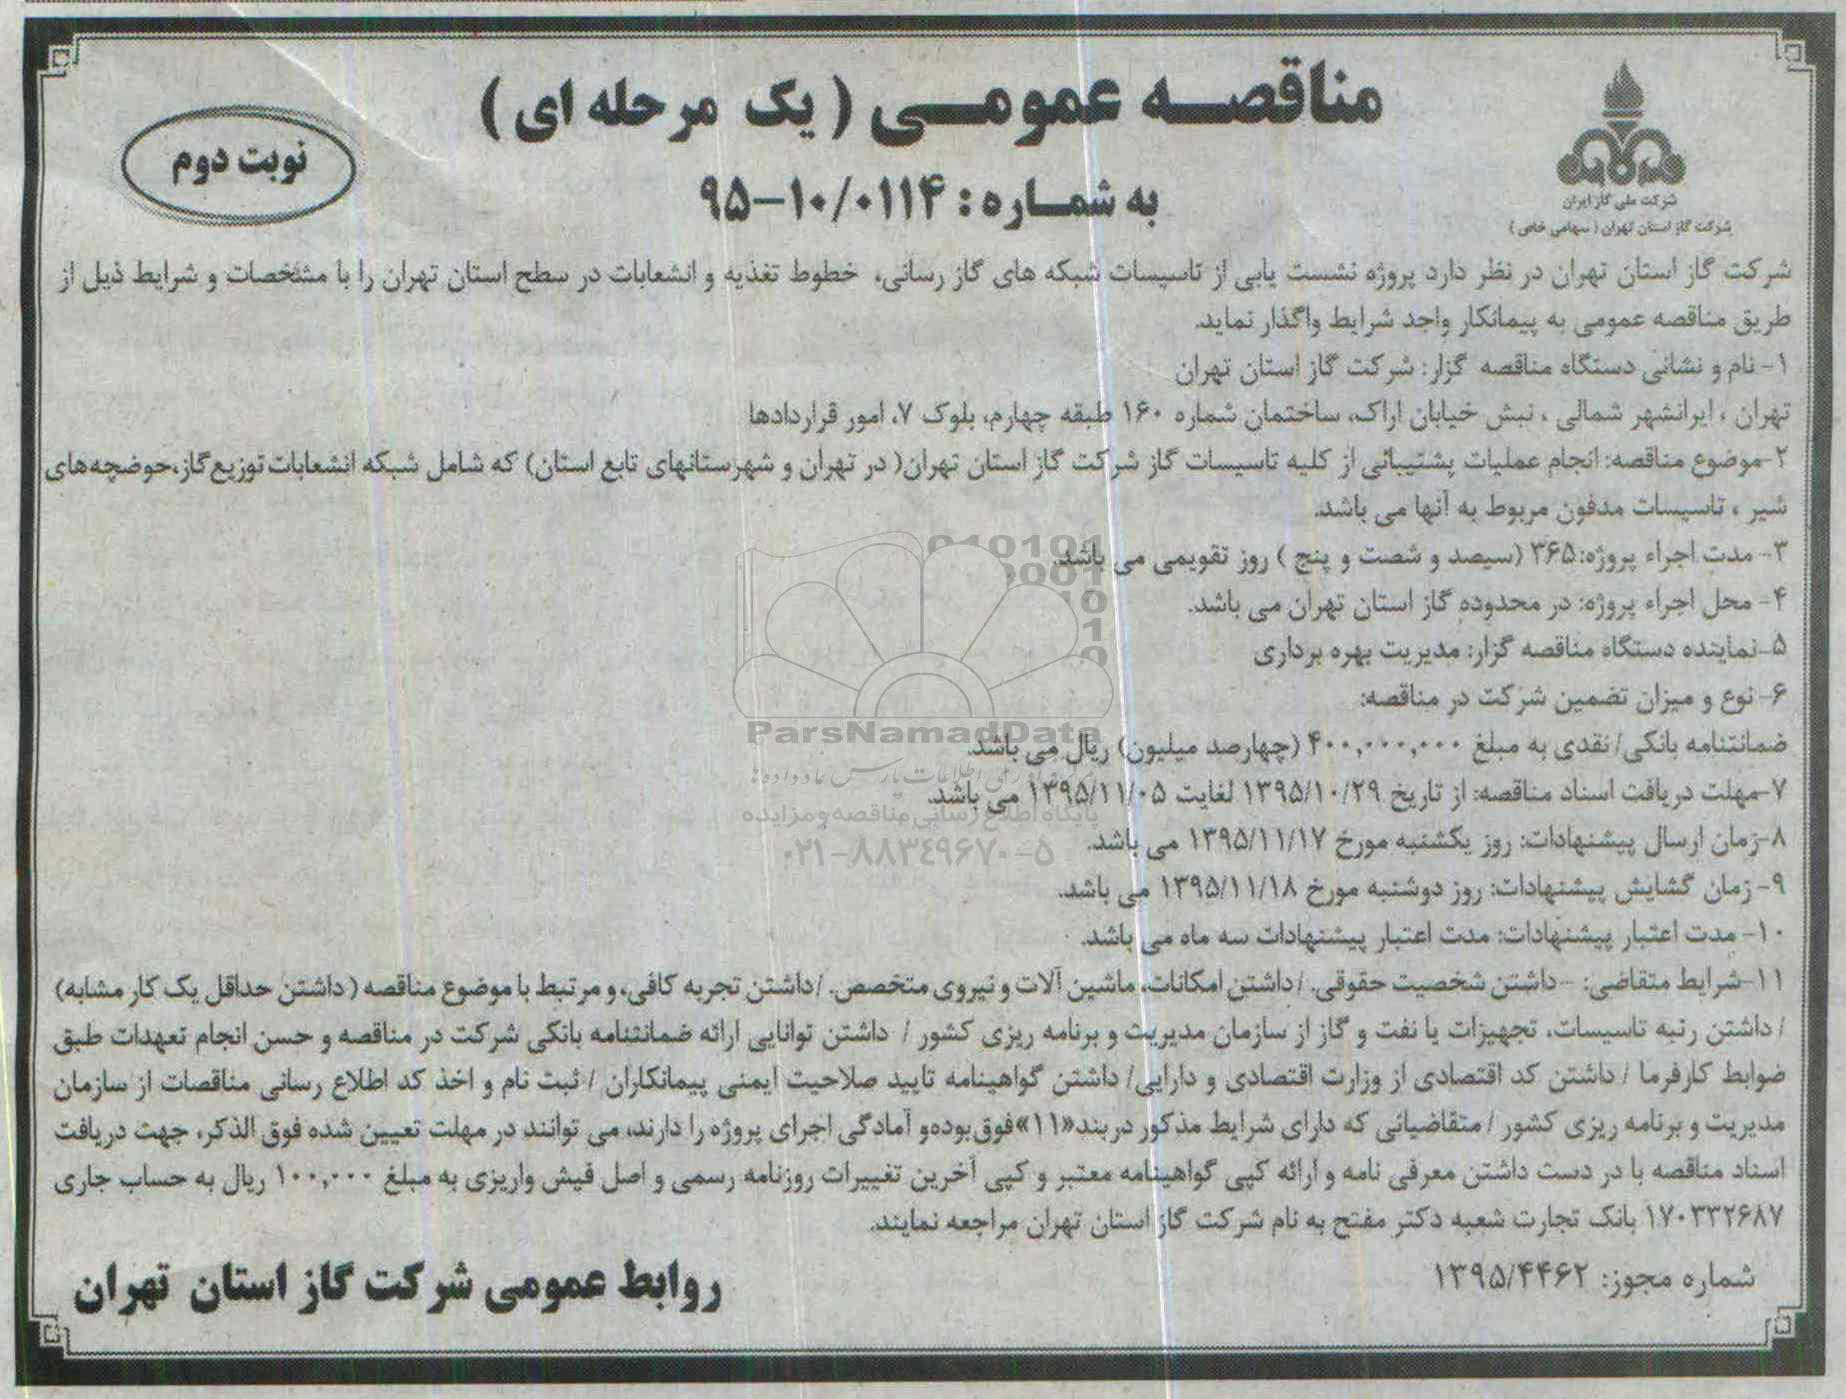 مناقصه عمومی ( یک مرحله ای )
به شماره : ۹۵-۱۰/۰۱۱۴
نوبت دوم
شرکت ملی گاز ایران
شرکت گاز استان تهران ( سهامی خاص )
شرکت گاز استان تهران در نظر دارد پروژه نشست یابی از تاسیسات شبکه های گاز رسانی، خطوط تغذیه و انشعابات در سطح استان تهران را با مشخصات و شرایط ذیل از
طریق مناقصه عمومی به پیمانکار واجد شرایط واگذار نماید.
۱- نام و نشانی دستگاه مناقصه گزار: شرکت گاز استان تهران
تهران ، ایرانشهر شمالی ، نبش خیابان اراک، ساختمان شماره ۱۶۰ طبقه چهارم، بلوک ۷، امور قراردادها
۲-موضوع مناقصه: انجام عملیات پشتیبانی از کلیه تاسیسات گاز شرکت گاز استان تهران( در تهران و شهرستانهای تابع استان) که شامل شبکه انشعابات توزیع گاز،حوضچه های
شیر ، تاسیسات مدفون مربوط به آنها می باشد.
۳- مدت اجراء پروژه:۳۶۵ (سیصد و شصت و پنج ) روز تقویمی می باشد.
۴- محل اجراء پروژه: در محدوده گاز استان تهران می باشد.
۵-نماینده دستگاه مناقصه گزار: مدیریت بهره برداری
۶- نوع و میزان تضمین شرکت در مناقصه:
ضمانتنامه بانکی/ نقدی به مبلغ ۴۰۰,۰۰۰,۰۰۰ (چهارصد میلیون) ریال می باشد.
۷-مهلت دریافت اسناد مناقصه: از تاریخ ۱۳۹۵/۱۰/۲۹ لغایت ۱۳۹۵/۱۱/۰۵ می باشد.
۸-زمان ارسال پیشنهادات: روز یکشنبه مورخ ۱۳۹۵/۱۱/۱۷ می باشد.
۹- زمان گشایش پیشنهادات: روز دوشنبه مورخ ۱۳۹۵/۱۱/۱۸ می باشد.
۱۰- مدت اعتبار پیشنهادات: مدت اعتبار پیشنهادات سه ماه می باشد.
۱۱-شرایط متقاضی: -داشتن شخصیت حقوقی. /داشتن امکانات، ماشین آلات و نیروی متخصص. /داشتن تجربه کافی، و مرتبط با موضوع مناقصه (داشتن حداقل یک کار مشابه)
/ داشتن رتبه تاسیسات، تجهیزات یا نفت و گاز از سازمان مدیریت و برنامه ریزی کشور / داشتن توانایی ارائه ضمانتنامه بانکی شرکت در مناقصه و حسن انجام تعهدات طبق
ضوابط کارفرما / داشتن کد اقتصادی از وزارت اقتصادی و دارایی/ داشتن گواهینامه تایید صلاحیت ایمنی پیمانکاران / ثبت نام و اخذ کد اطلاع رسانی مناقصات از سازمان
مدیریت و برنامه ریزی کشور / متقاضیانی که دارای شرایط مذکور دربند«۱۱»فوق بوده و آمادگی اجرای پروژه را دارند، می توانند در مهلت تعیین شده فوق الذکر، جهت دریافت
اسناد مناقصه با در دست داشتن معرفی نامه و ارائه کپی گواهینامه معتبر و کپی آخرین تغییرات روزنامه رسمی و اصل فیش واریزی به مبلغ ۱۰۰,۰۰۰ ریال به حساب جاری
۱۷۰۳۳۲۶۸۷ بانک تجارت شعبه دکتر مفتح به نام شرکت گاز استان تهران مراجعه نمایند.
شماره مجوز: ۱۳۹۵/۴۴۶۲
روابط عمومی شرکت گاز استان تهران
ParsNamadData
پایگاه اطلاع رسانی مناقصه و مزایده
۰۲۱-۸۸۳۴۹۶۷۰-۵